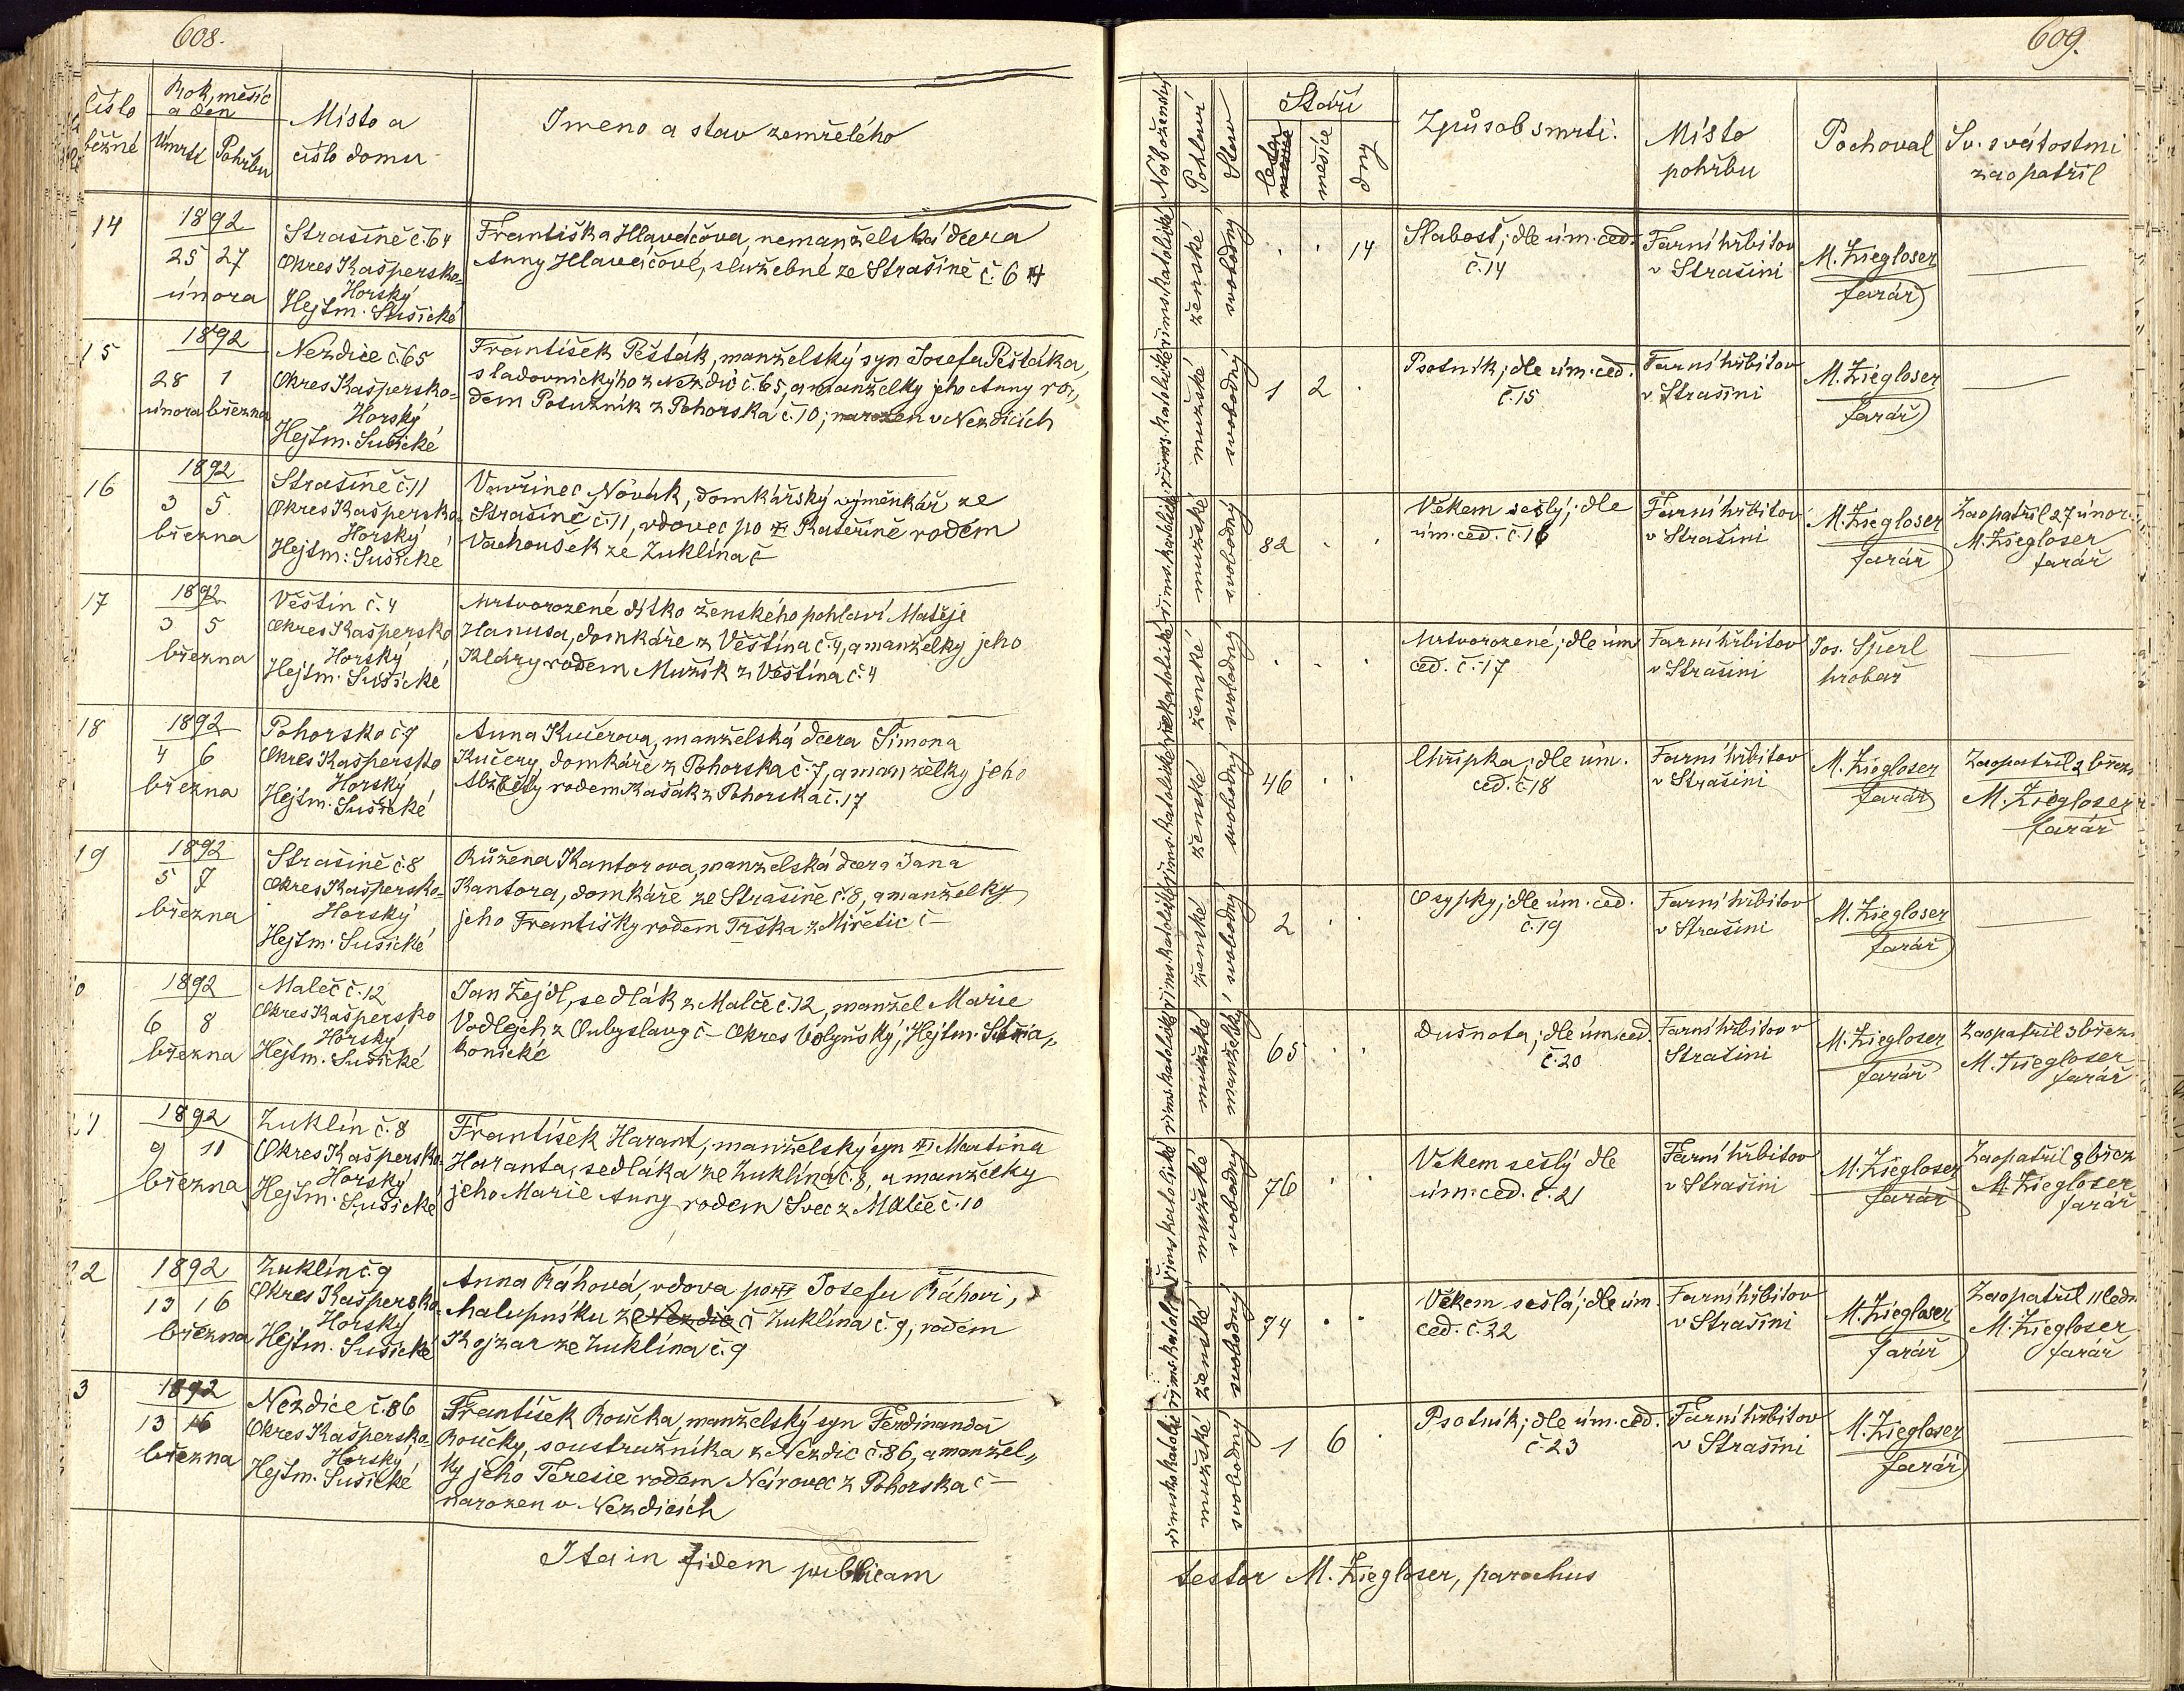 608.
Číslo běžné
Rok, měsíc a den
Úmrtí
Pohřbu
Místo a číslo domu
Jmeno a stav zemřelého
14
1892
25 27
února
Strašině č. 64
Okres Kaspersko-
Horský
Hejtm. Sušické
Františka Hlaváčova, nemanželská dcera
Anny Hlaváčové, služebné ze Strašině č. 64
15
1892
28 1
února března
Nezdice č. 65
Okres Kašpersko-
Horský
Hejtm. Sušické
František Pešták, manželský syn Josefa Peštáka,
sladovnického z Nezdic č. 65, a manželky jeho Anny ro-
dem Potužník z Pohorska č. 10; narozen v Nezdicích
16
1892
3 5.
března
Strašině č. 11
Okres Kašpersko-
Horský
Hejtm. Sušické
Vavřinec Novák, domkářský výměnkář ze
Strašině č. 11, vdovec po Kateřině rodem
Vachoušek ze Zuklína č
17
1892
3 5
března
Věštín č. 4
Okres Kašpersko
Horský
Hejtm. Sušické
Mrtvorozené dítko ženského pohlaví Matěje
Hanusa, domkáře z Věštína č. 4, a manželky jeho
Kláry rodem Mužík z Věštína č. 4
18
1892
4 6
března
Pohorsko č. 7
Okres Kaspersko
Horský
Hejtm. Sušické
Anna Kučerova, manželská dcera Šimona
Kučery, domkáře z Pohorska č. 7, a manželky jeho
Alžběty rodem Kašák z Pohorska č. 17
19
1892
5 7
března
Strašině č. 8
Okres Kašpersko-
Horský
Hejtm. Sušické
Růžena Kantorova, manželská dcera Jana
Kantora, domkáře ze Strašině č. 8, a manželky
jeho Františky rodem Trška z Miřetic č –
0
1892
6 8
března
Maleč č. 12
Okres Kašpersko
Horský
Hejtm. Sušické
Jan Zejdl, sedlák z Malče č. 12, manžel Marie
č – Okres Volyňský, Hejtm. Stra-
konické
1
1892
9 11
března
Zuklín č. 8
Okres Kašpersko-
Horský
Hejtm. Sušické
František Harant, manželský syn Martina
Haranta, sedláka ze Zuklína č. 8, a manželky
jeho Marie Anny rodem Švec z Malče č. 10
2
1892
13 16
března
Zuklín č. 9
Okres Kašpersko-
Horský
Hejtm. Sušické
Anna Ráhová, vdova po Josefu Ráhovi,
chalupníku z Nezdic č Zuklína č. 9, rodem
Kojzar ze Zuklína č. 9
3
1892
13 16
března
Nezdice č. 86
Okres Kašpersko-
Horský
Hejtm. Sušické
František Roučka, manželský syn Ferdinanda
Roučky, soustružníka z Nezdic č. 86, a manžel-
ky jeho Teresie rodem Nárovec z Pohorska č –
narozen v Nezdicích
Ita in fidem publicam
609.
Náboženství
Pohlaví
Stav
Stáří
leta
měsíce
dny
Způsob smrti.
Místo pohřbu
Pochoval
Sv. svátostmi zaopatřil
římskokatolické
ženské
svobodný
14
Slabost; dle úm. ced.
č. 14
Farní hřbitov
v Strašíni
M. Ziegloser
farář
římskokatolické
mužské
svobodný
1 2
Psotník; dle úm. ced.
č. 15
Farní hřbitov
v Strašíni
M. Ziegloser
farář
římskokatolické
mužské
svobodný
82
Věkem sešlý; dle
úm. ced. č. 16
Farní hřbitov
v Strašini
M. Ziegloser
farář
Zaopatřil 27 únor
M. Ziegloser
farář
římskokatolické
ženské
svobodný
Mrtvorozené; dle úm
ced. č. 17
Farní hřbitov
v Strašini
Jos. Šperl
hrobař
římskokatolické
ženské
svobodný
46
Chřipka; dle úm.
ced. č. 18
Farní hřbitov
v Strašini
M. Ziegloser
farář
Zaopatřil 2 břez
M. Ziegloser
farář
římskokatolické
ženské
svobodný
2
Osypky; dle úm. ced.
č. 19
Farní hřbitov
v Strašini
M. Ziegloser
farář
římskokatolické
mužské
manželský
65
Dušnota; dle úm. ced.
č. 20
Farní hřbitov v
Strašini
M. Ziegloser
farář
Zaopatřil 3 břez
M. Ziegloser
farář
římskokatolické
mužské
svobodný
76
Věkem sešlý dle
úm. ced. č. 21
Farní hřbitov
v Strašini
M. Ziegloser
farář
Zaopatřil 8 břez
M. Ziegloser
farář
římskokatol.
ženské
svobodný
74
Věkem sešlá; dle úm.
ced. č. 22
Farní hřbitov
v Strašini
M. Ziegloser
farář
Zaopatřil 11 ledn
M. Ziegloser
farář
římskokatolické
mužské
svobodný
1 6
Psotník; dle úm. ced.
č. 23
Farní hřbitov
v Strašini
M. Ziegloser
farář
testor M. Ziegloser, parochus